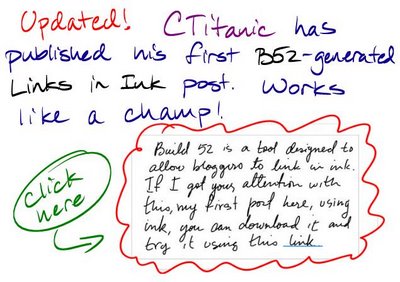 Updated! CTitanic has
published his first B52-generated
Links in Ink post. Works
like a champ!
click
here
Build 52 is a tool designed to
allow bloggers to link in ink.
If I got your attention with
this, my first post here, using
ink, you can download it and
try it using this link